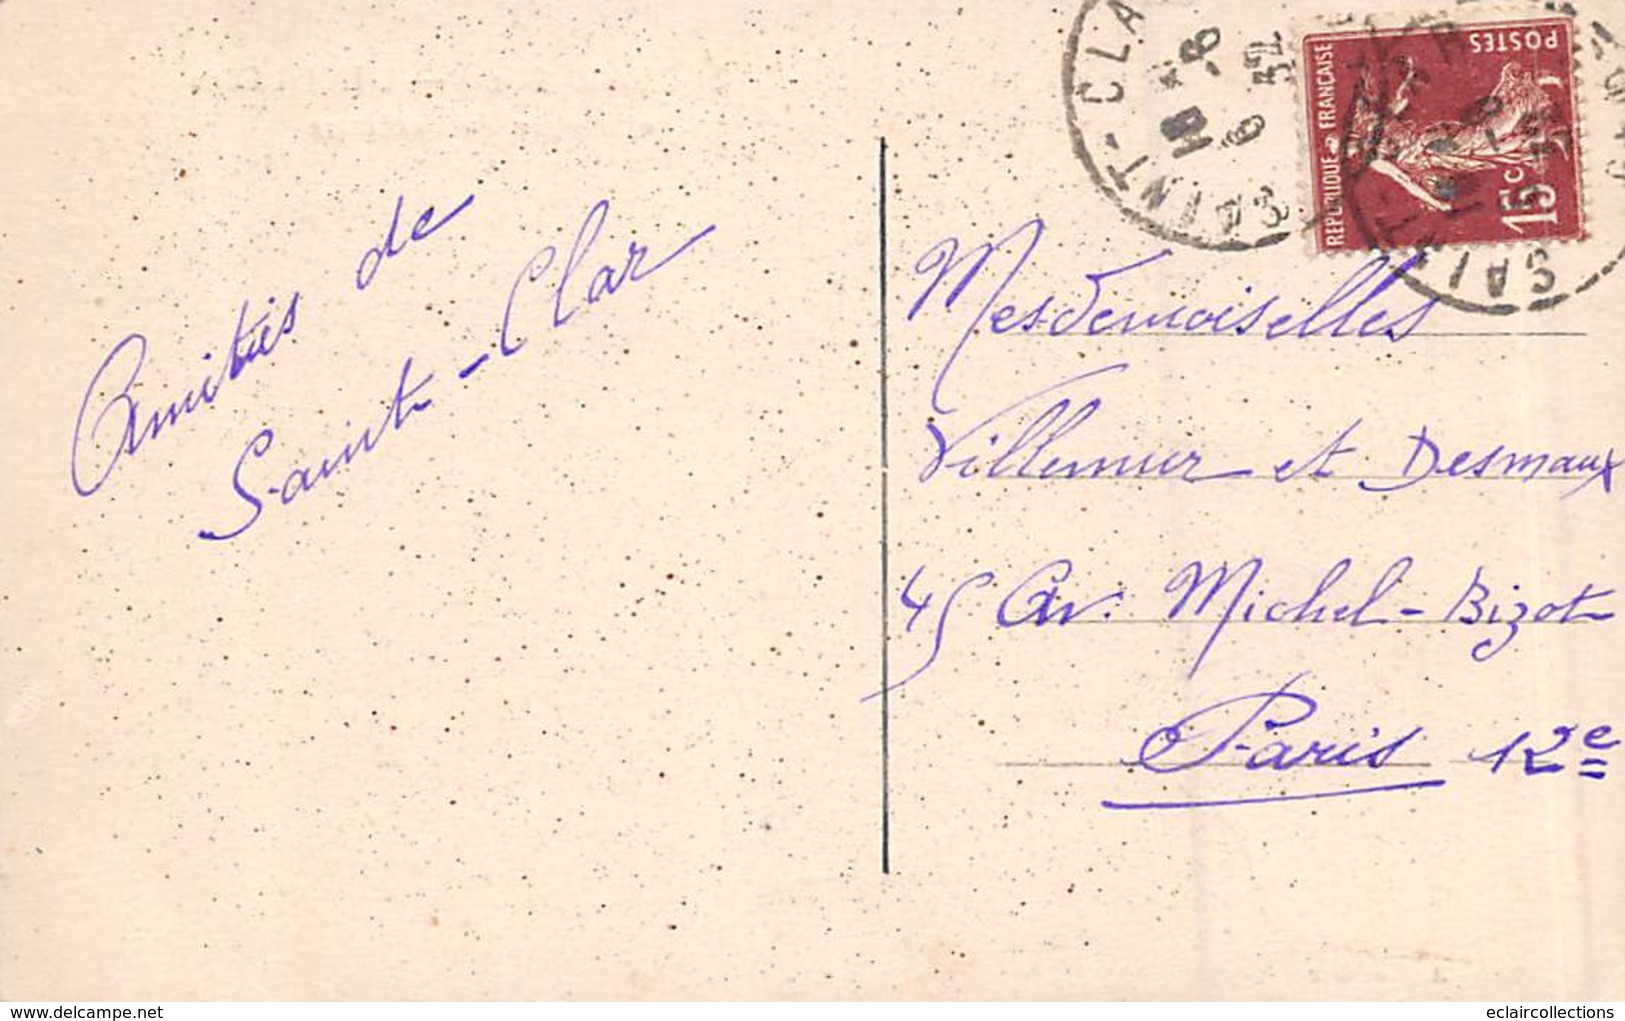 Amitiés de
Saint-Clar
SAINT-CLA
18
6
32
REPUBLIQUE FRANÇAISE
POSTES
15c
Mesdemoiselles
Villemur et Desmaux
45 Av. Michel-Bizot
Paris 12e
delcampe.net
eclaircollections